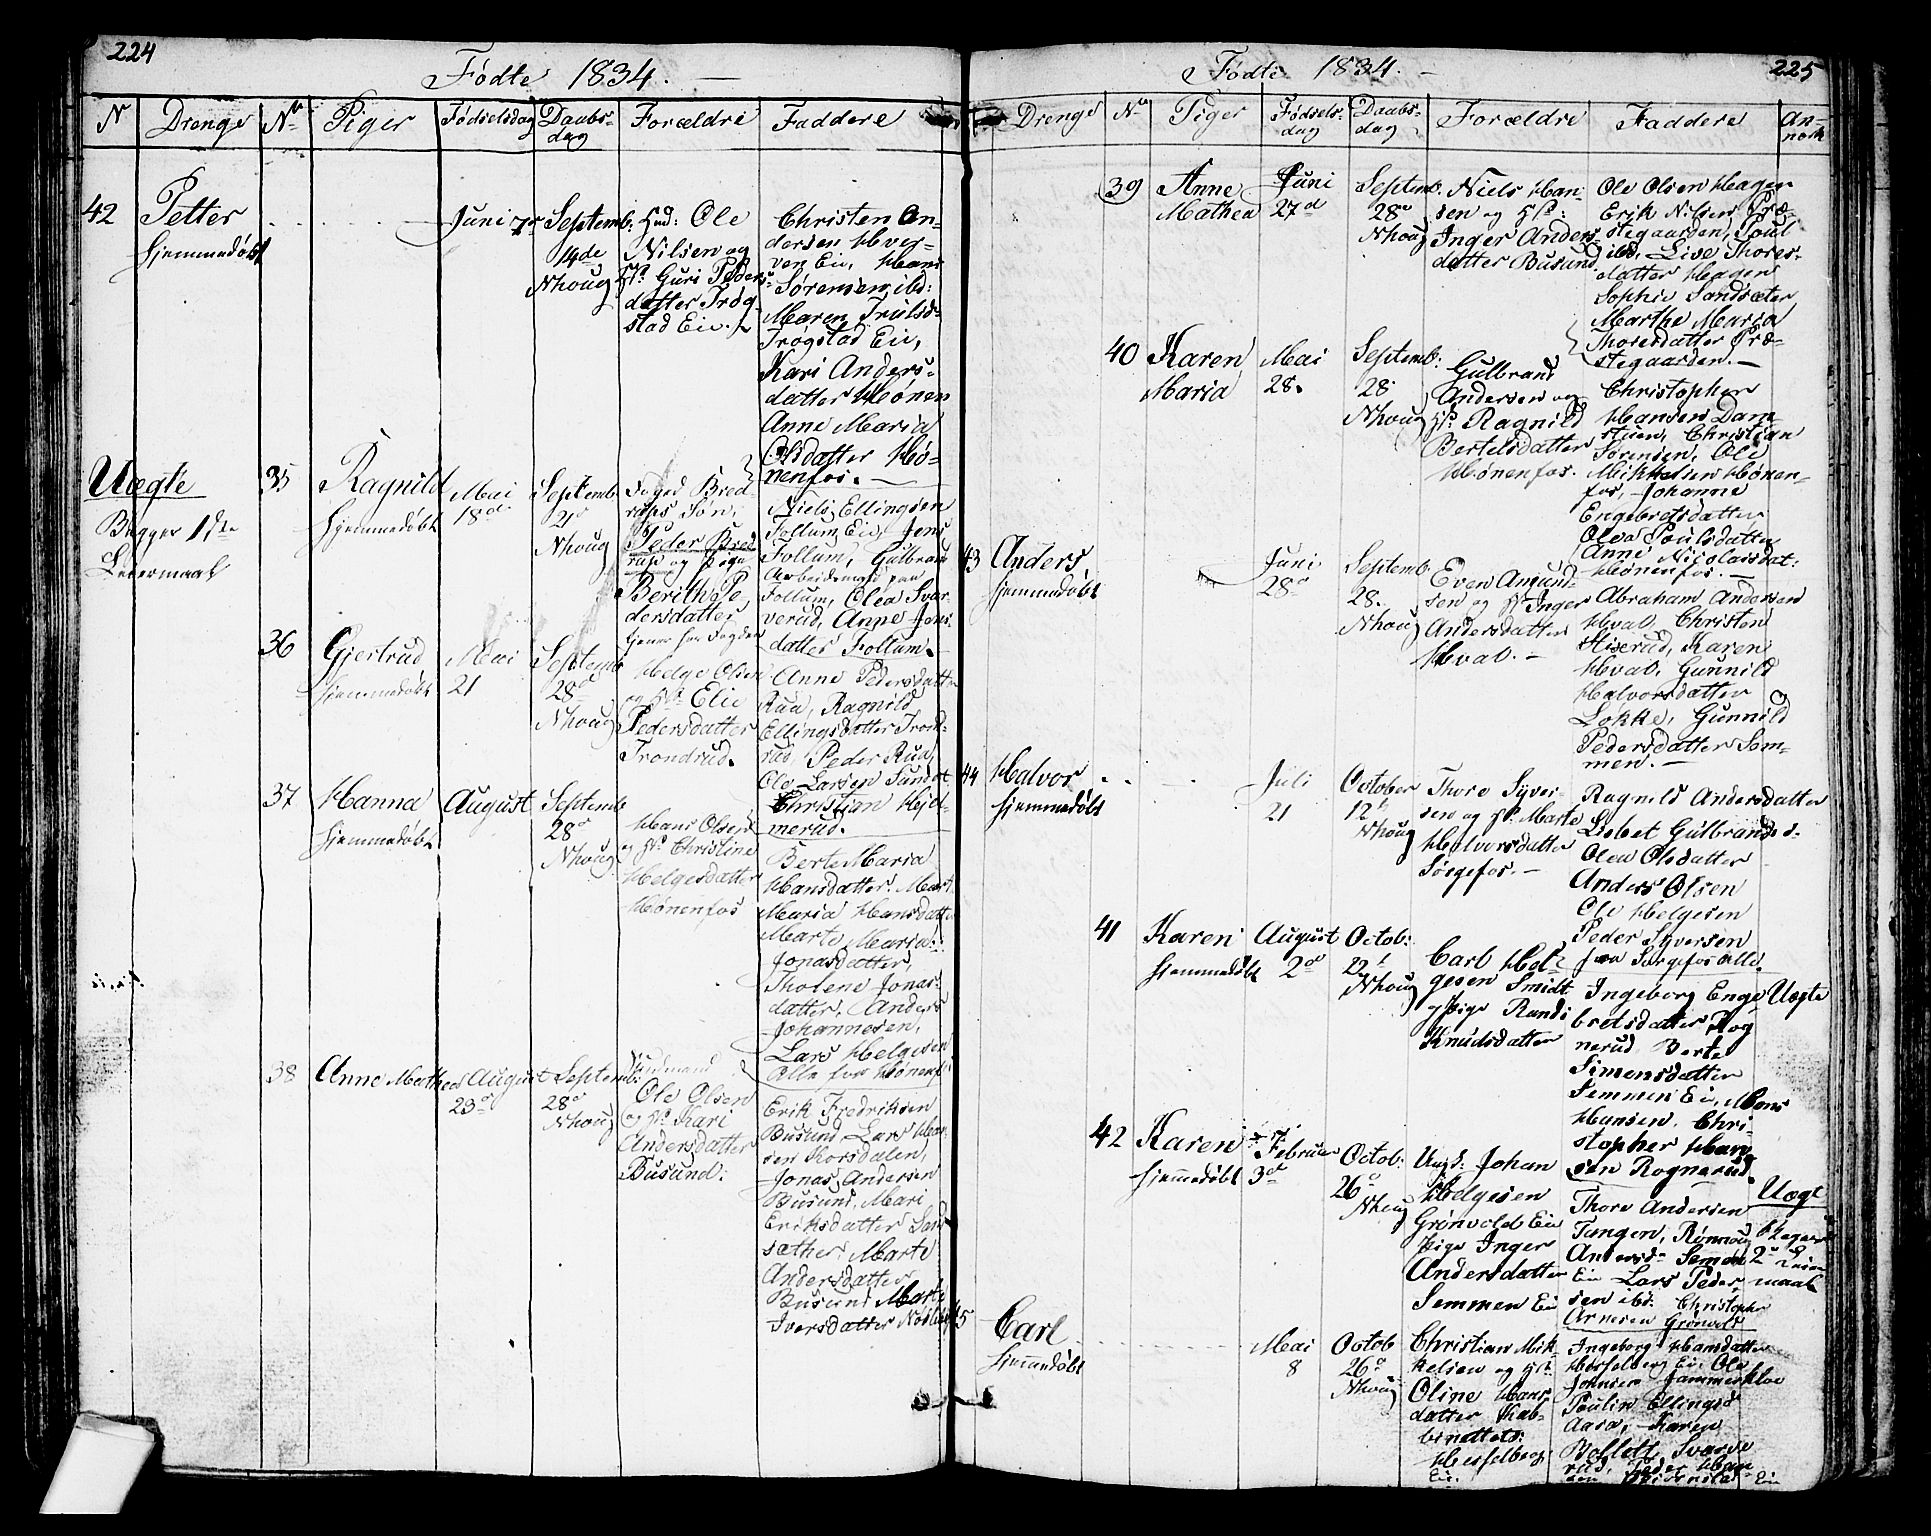 224
Födte 1834. —
N
Drenge
No
Piger
Födselsdag
Daabs-
dag
Forældre
Faddere
42
Petter
hjemmedöbt
Juni 7de
Septemb:
14de
Nhoug
Ole
Nilsen og
Guri Peders-
datter Trög-
stad Eie.
Christen An-
dersen Hver-
ven Eie, Hans
Sörensen ibd:
Maren Trulsd-
Trögstad Eie,
Kari Anders-
datter Hönen
Anne Maria
Olsdatter Hö-
nenfos. —
Uægte
Begges 1ste
Leiermaal
35
Ragnild
hjemmedöbt
Mai
18de
Septemb:
21
Nhoug
Foged Bred
rups Sön,
Peder Bred
rup og Pige
Berith Pe-
dersdatter
tjener hos Fogden
Niels Ellingsen
Follum Eie, Jens
Follum, Gulbran
Arbeidsmand paa
Follum, Olea Svar
verud, Anne Jens
datter Follum.
36
Gjertrud
hjemmedöbt
Mai
21
Septemb
28de
Nhoug
Helge Olsen
og H. Elie
Pedersdatter
Trondrud.
Anne Pedersdatter
Rua, Ragnild
Ellingsdatter Trond-
rud, Peder Rua,
Ole Larsen Sundet
Christian Hjel-
merud.
37
Hanna
hjemmedöbt
August
Septemb
28
Nhoug
Hans Olsen
og H. Christine
Helgesdatter
Hönenfos
Berte Maria
Hansdatter. Mart
Maria Hansdatter
Marte Maria
Jonasdatter,
Tholene Jonas-
datter, Anders
Johannesen,
Lars Helgesen
Alle fra Hönenf:
38
Anne Mathea
August
23
Septemb:
28
Nhoug
Ole Olsen
og H. Kari
Andersdatter
Busund.
Erik Fredriksen
Busund, Lars Han
sen Thorsdalen,
Jonas Andersen
Busund, Mari
Eriksdatter Sand
sæther Marte
Andersdatter
Busund Marte
Iversdatter
225
Födte 1834. —
Drenge
No
Piger
Födsels-
dag
Daabs-
dag
Forældre
Faddere
An-
mærk
39
Anne
Mathea
Juni
27de
Septemb:
28
Nhoug
Niels Han-
sen og H:
Inger Anders-
datter Busund
Ole Olsen Hagen
Erik Nilsen Præ-
stegaarden, Poul
ibd, Live Thores-
datter Hagen
Sophie Sandsæter
Marthe Maria
Thoresdatter Præ-
stegaarden. —
40
Karen
Maria
Mai
28.
Septemb:
28
Nhoug
Gulbrand
Andersen og
H. Ragnild
Bertelsdatter
Hönenfos.
Christopher
Hansen Dam
stuen, Christian
Sörensen, Ole
Mikkelsen Hönen-
fos, Johanne
Engebretsdatter
Olea Poulsdatter
Anne Nicolaisdat:
Hönenfos. —
43
Anders,
hjemmedöbt
Juni
28
Septemb
28.
Nhoug
Even Amund-
sen og H. Inger
Andersdatter
Hval. —
Abraham Andersen
Hval, Christen
Hiserud, Karen
Hval, Gunnild
Halvorsdatter
Lökke, Gunnild
Pedersdatter Sem-
men. —
44
Halvor
hjemmedöbt
Juli
21
October
12
Nhoug
Thore Syver-
sen og H. Marte
Halvorsdatter
Sörgefos. —
Ragnild Andersdatter
Lisbet Gulbrandsd-
Olea Olsdatter
Anders Olsen
Ole Helgesen
Peder Syversen
fra Sörgefos alle.
41
Karen
hjemmedöbt
August
2
Octob:
12
Nhoug
Carl Hel-
gesen Smidt
og Pige Randi
Knudsdatter
Ingeborg Enge
bretsdatter Rog
nerud Berte
Simensdatter
Semmen Eie, Mons
Hansen, Chri-
stopher Han-
sen Rognerud.
Uægte
42
Karen
hjemmedöbt
Februar
3de
Octob:
26
Nhoug
Ungk: Johan
Helgesen
Grönvold Eie
Pige Inger
Andersdatter
Semmen Eie
Thore Andersen
Tangen, Rönnoug
Andersd- Semen
Eie Lars Peder
sen ibd: Christopher
Arnesen Grönvold
Uægte
2
maal
45
Carl
hjemmedöbt
Mai
8
Octob
26
Nhoug
Christian Mik-
kelsen og H.
Oline Hans
datter Kab-
binettets:
Hesselberg
Eie.
Ingeborg Hansdatter
Hesselberg Eie Ole
Johnsen Jammerkloe
Poulin Ellingsd
Aasa, Karen
Svarve
rud, Peder Han
Eie